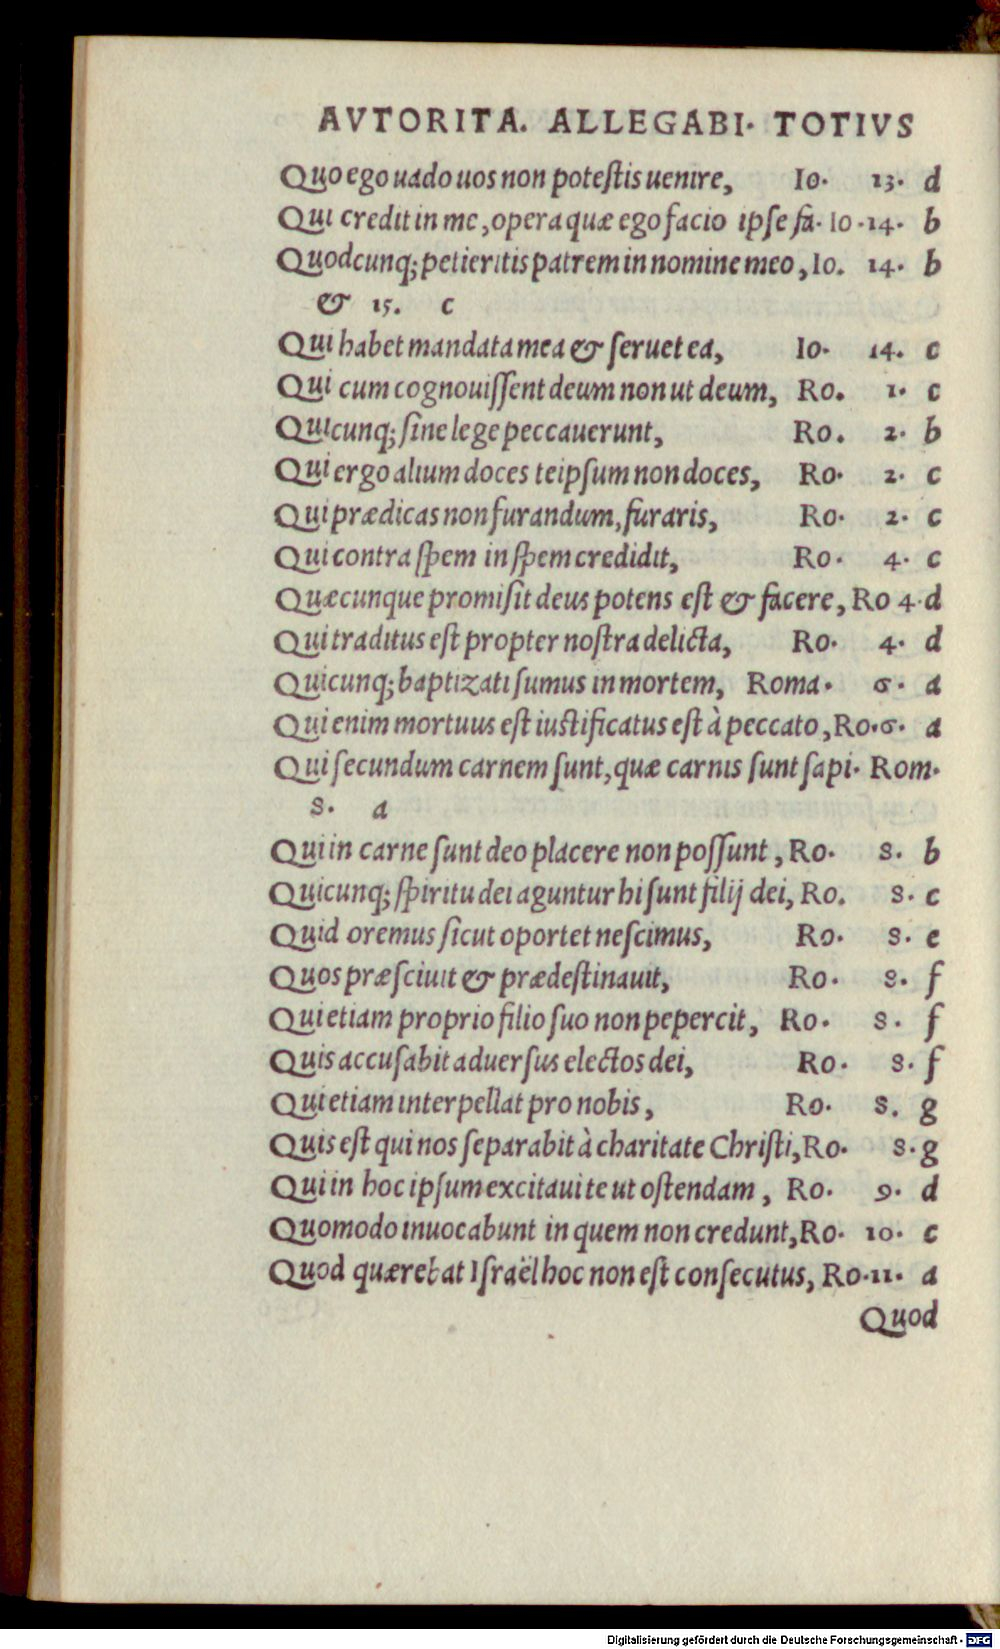 AVTORITA. ALLEGABI. TOTIVS
Quo ego uado uos non potestis uenire, Io. 13. d
Qui credit in me, opera quæ ego facio ipse fa. Io. 14. b
Quodcunq; petieritis patrem in nomine meo, Io. 14. b
& 15. c
Qui habet mandata mea & seruet ea, Io. 14. c
Qui cum cognouissent deum non ut deum, Ro. 1. c
Quicunq; sine lege peccauerunt, Ro. 2. b
Qui ergo alium doces teipsum non doces, Ro. 2. c
Qui prædicas non furandum, furaris, Ro. 2. c
Qui contra spem in spem credidit, Ro. 4. c
Quæcunque promisit deus potens est & facere, Ro 4. d
Qui traditus est propter nostra delicta, Ro. 4. d
Quicunq; baptizati sumus in mortem, Roma. 6. a
Qui enim mortuus est iustificatus est à peccato, Ro. 6. a
Qui secundum carnem sunt, quæ carnis sunt sapi. Rom.
8. a
Qui in carne sunt deo placere non possunt, Ro. 8. b
Quicunq; spiritu dei aguntur hi sunt filij dei, Ro. 8. c
Quid oremus sicut oportet nescimus, Ro. 8. e
Quos præsciuit & prædestinauit, Ro. 8. f
Qui etiam proprio filio suo non pepercit, Ro. 8. f
Quis accusabit aduersus electos dei, Ro. 8. f
Qui etiam interpellat pro nobis, Ro. 8. g
Quis est qui nos separabit à charitate Christi, Ro. 8. g
Qui in hoc ipsum excitaui te ut ostendam, Ro. 9. d
Quomodo inuocabunt in quem non credunt, Ro. 10. c
Quod quærebat Israël hoc non est consecutus, Ro. 11. a
Quod
Digitalisierung gefördert durch die Deutsche Forschungsgemeinschaft - DFG